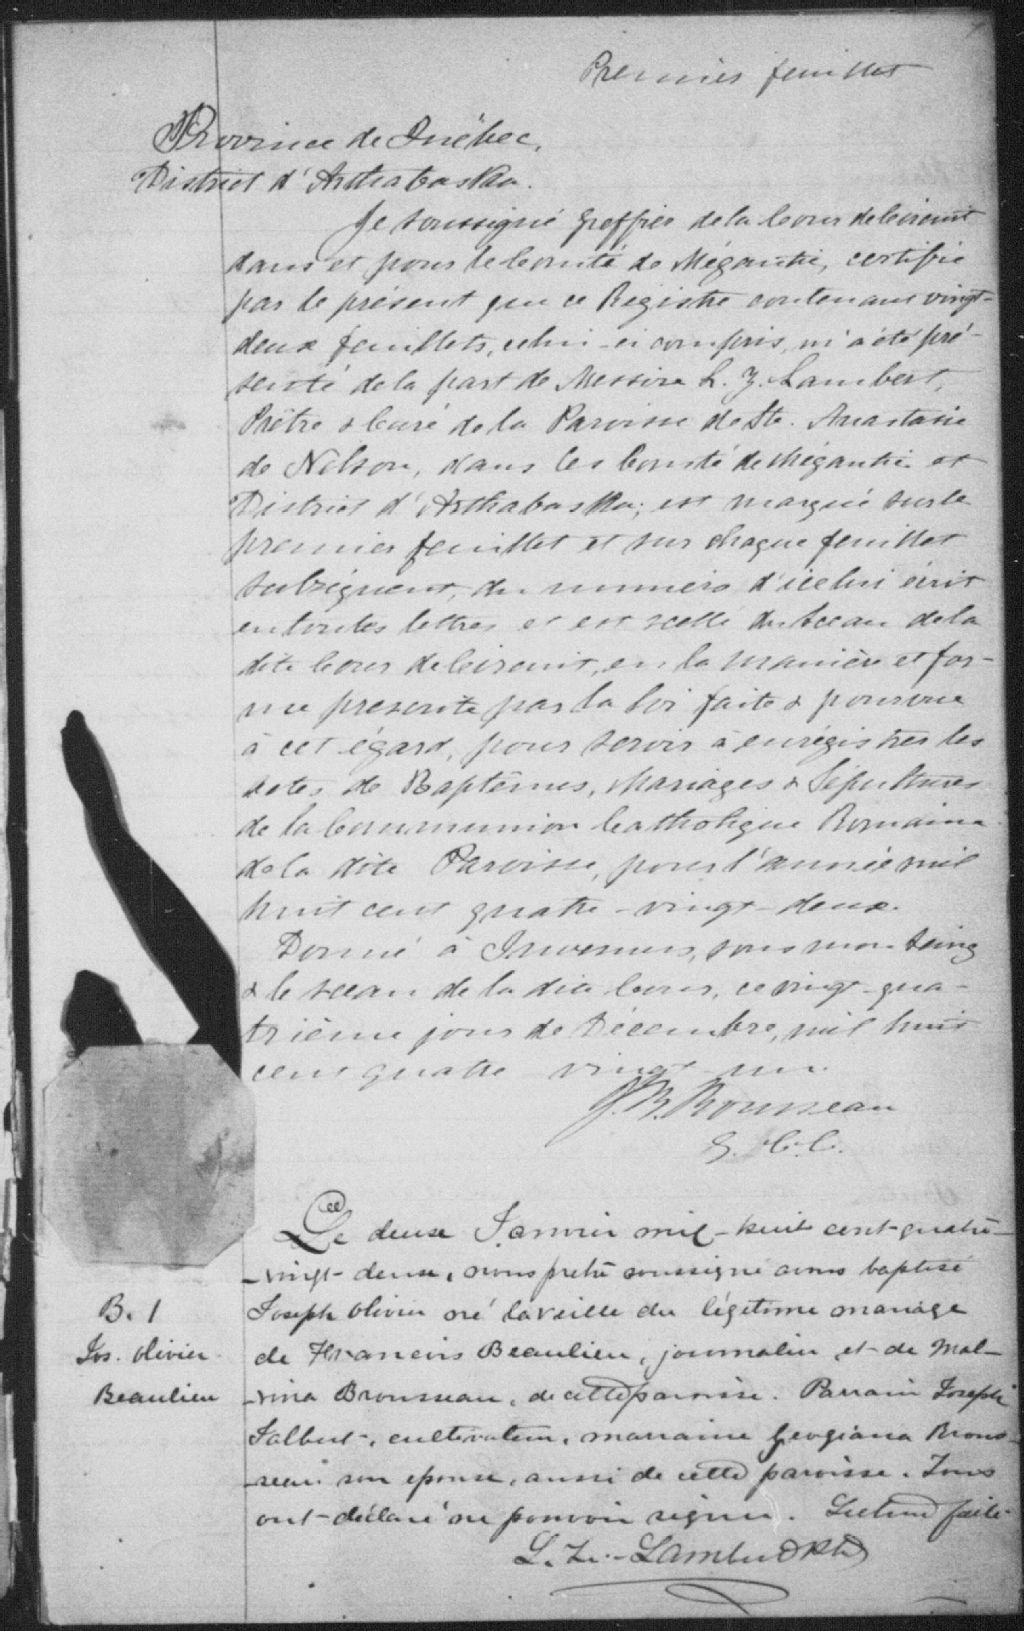 Premier feuillet
Province de Québec,
District d'Arthabaska.
Je soussigné Greffier de la Cour de Circuit
dans et pour le Comté de Mégantic, certifie
par le présent que ce Registre contenant vingt-
deux feuillets, celui-ci compris, m'a été pré-
senté de la part de Messire L. Z. Lambert,
Prêtre & Curé de la Paroisse de Ste. Anastasie
de Nelson, dans les Comté de Mégantic et
District d'Arthabaska; est marqué sur le
premier feuillet et sur chaque feuillet
subséquent, du numéro d'icelui écrit
en toutes lettres et est scellé du Sceau de la
dite Cour de Circuit, en la manière et for-
me prescrite par la loi faite & pourvue
à cet égard, pour servir à enrégistrer les
actes de Baptêmes, Mariages & Sépultures
de la Communion Catholique Romaine
de la dite Paroisse, pour l'année mil
huit cent quatre-vingt-deux.
Donné à Inverness, sous mon Seing
& le sceau de la dite Cour, ce vingt-qua-
trième jour de Décembre, mil huit
cent quatre vingt un.
J. B. Rousseau
G. C. C.
Le deux Janvier mil-huit cent-quatre-
-vingt-deux, nous pretre soussigné avons baptisé
B. 1
Joseph Olivier né la veille du légitime mariage
Jos. Olivier
de Francois Beaulieu, journalier et de Mal-
Beaulieu
-vina Brousseau, de cette paroisse. Parrain Joseph
Talbert, cultivateur, marraine Geogiana Brous-
-seau son epouse, aussi de cette paroisse. Tous
ont-déclaré ne pouvoir signer. Lecture faite.
L. Z. Lambert Ptre